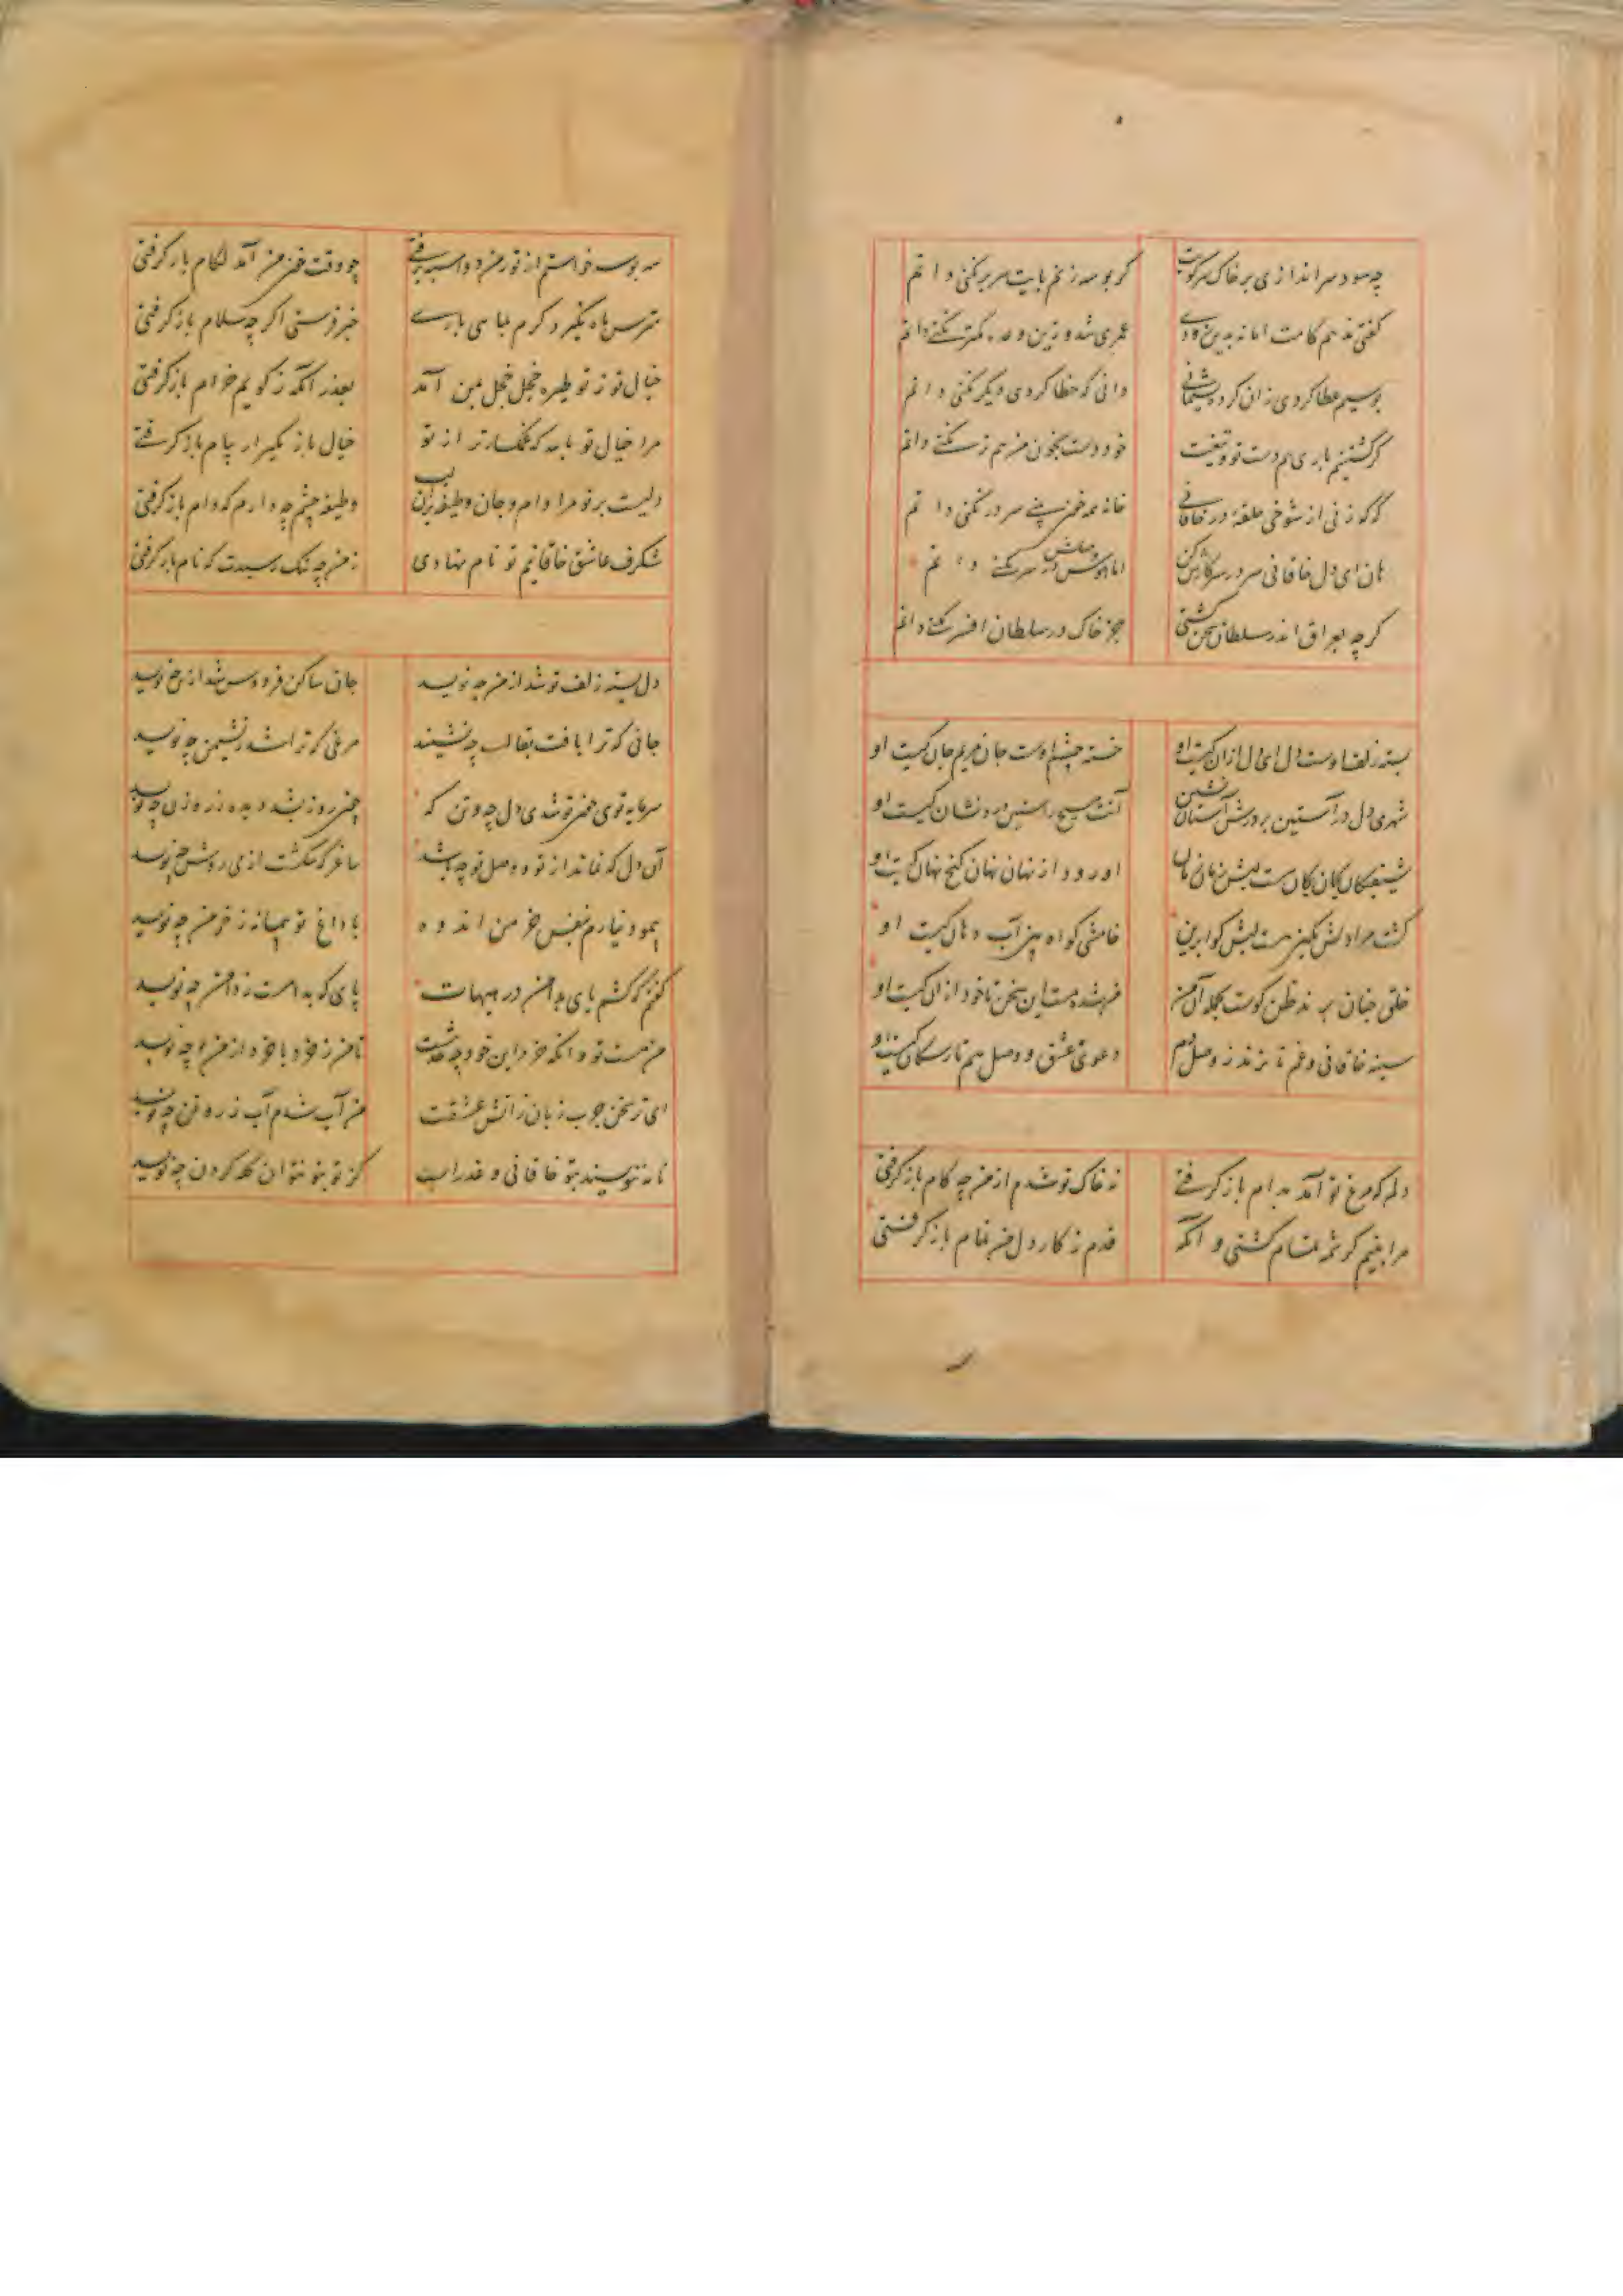 چه سود سر اندازی بر خاک سر کویت گر بوسه زنم پایت سر بر نکنی دانم
گفتی بدهم کامت اما نه بدین زودی عمری شد و زین وعده کمتر نکنی دانم
بوسیم عطا کردی زان کرده پشیمانی دانی که خطا کردی دیگر نکنی دانم
گر کشتنیم باری هم دست تو و تیغت خود دست بخون من هم تر نکنی دانم
گر که زنی از شوخی حلقه در خاقانی خانه همه خون بینی سر در نکنی دانم
هان ای دل خاقانی سر در سر کارش کن اما هوس وصلش در سر نکنی دانم
گرچه بعراق اندر سلطان سخن گشتی جز خاک در سلطان افسر نکنی دانم
بسته زلف اوست دل ای دل ازان کیست او خسته چشم اوست جان مرهم جان کیست او
شهری دل در آستین بر درش آستان نشین آنت مسیح راستین درد نشان کیست او
شیفتگان یکان یکان مست لبش زمان زمان او رود از نهان نهان گنج نهان کیست او
کشت مرا دلش بکین هست لبش گوا برین خامشی گواه بین آب دهان کیست او
خلقی جنان برند ظن کوست بجمله آن من غره شده‌ست این سخن تا خود ازان کیست او
سینه خاقانی و غم تا نزند ز وصل دم دعوی عشق و وصل هم تا ز سگان کیست او
دلم که مرغ تو آمد بدام باز گرفتی نه خاک تو شدم از من چه گام باز گرفتی
مرا بنیم کرشمه تمام کشتی و آنگه قدم ز کار دل من تمام باز گرفتی
سه بوسه خواستم از تو ز من دو اسبه برفتی چو وقت خون من آمد لگام باز گرفتی
مترس ماه نگیرد گرم بیا سی باری خبر فرستی اگرچه سلام باز گرفتی
خیال تو ز تو طیره خجل خجل بمن آمد بعذر آنکه ز کویم خرام باز گرفتی
مرا خیال تو بامه که غمگسارتر از تو خیال باز مگیر ار پیام باز گرفتی
دلیست بر تو مرا وام و جان وظیفه بران لب وظیفه چشم چه دارم که وام باز گرفتی
شگرف عاشق خاقانیم تو نام نهادی ز من چه ننگ رسیدت که نام باز گرفتی
دل بسته زلف تو شد از من چه نویسد جان ساکن فردوس شد از تن چه نویسد
جانی که ترا یافت بقالب چه نشیند مرغی که ترا شد ز نشیمن چه نویسد
سرمایه توی چون تو شدی دل چه و تن که چون روز بشد دیده ز روزن چه نویسد
آن دل که نماند از تو و وصل تو چه باشد ساغر که شکست از می روشن چه نویسد
پیمود نیارم بنفس خرمن اندوه با داغ تو پیمانه ز خرمن چه نویسد
گفتم که کشم پای بدامن در هیهات پای که بدامست ز دامن چه نویسد
من مست تو و آنگه خرد این خود چه حدیثست تا من ز خود با خود از من چه نویسد
ای تر سخن چرب زبان ز آتش عشقت من آب شدم آب ز روغن چه نویسد
نامه ننویسند بتو خاقانی و عذر است کز تو بتو نتوان گله کردن چه نویسد